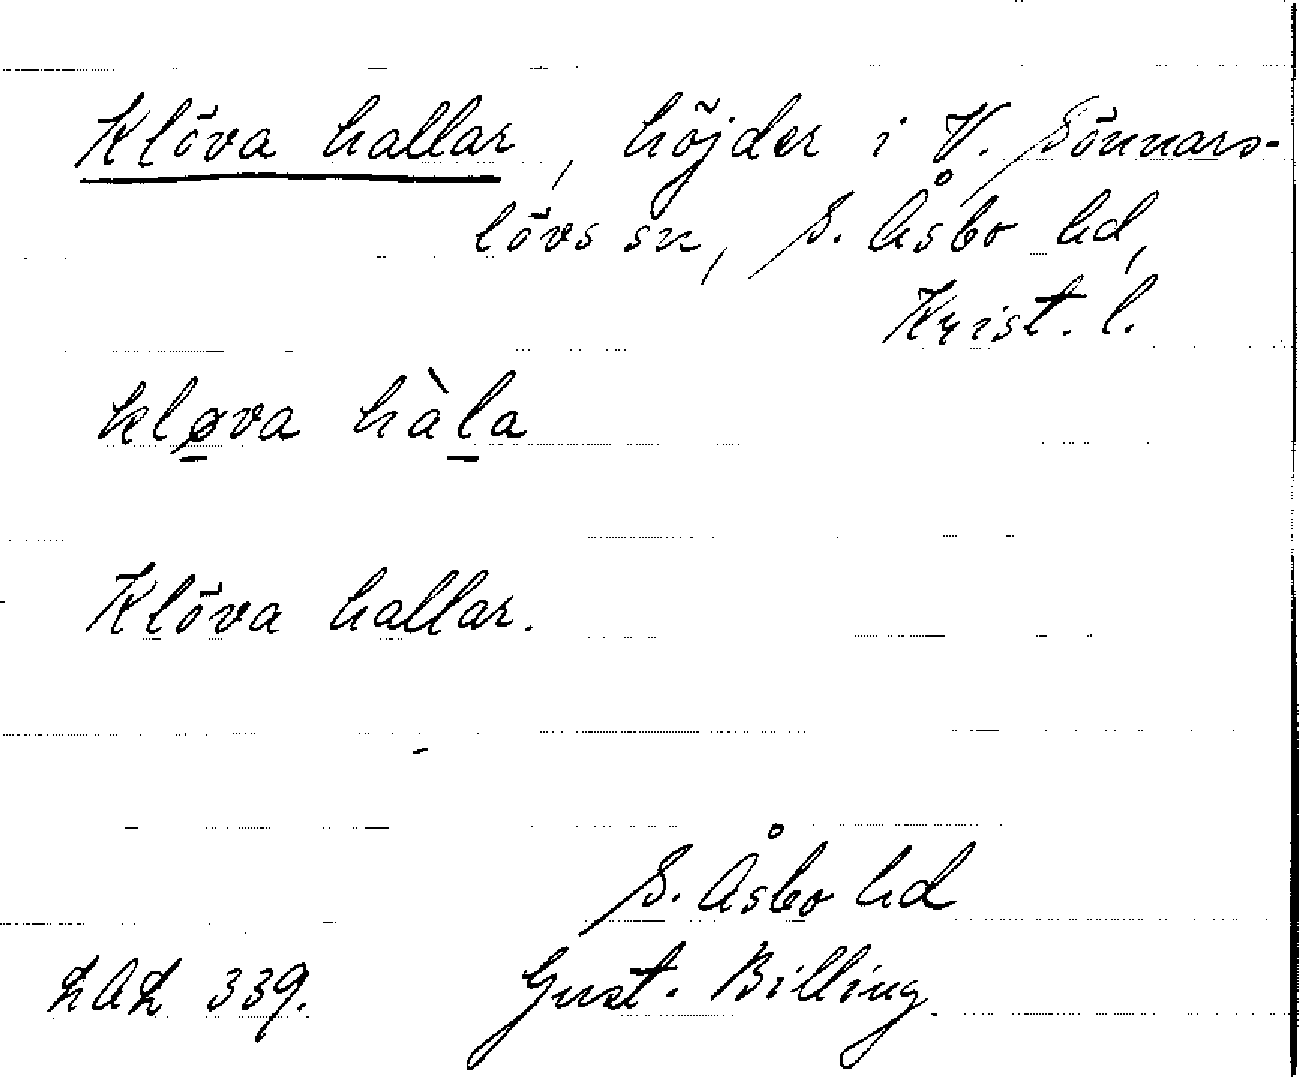 Klöva hallar, höjder i V. Sönnars-
lövs sn, S. Åsbo hd,
Krist. l.
kløva hàla
Klöva hallar.
S. Åsbo hd
LAL 339. Gust. Billing